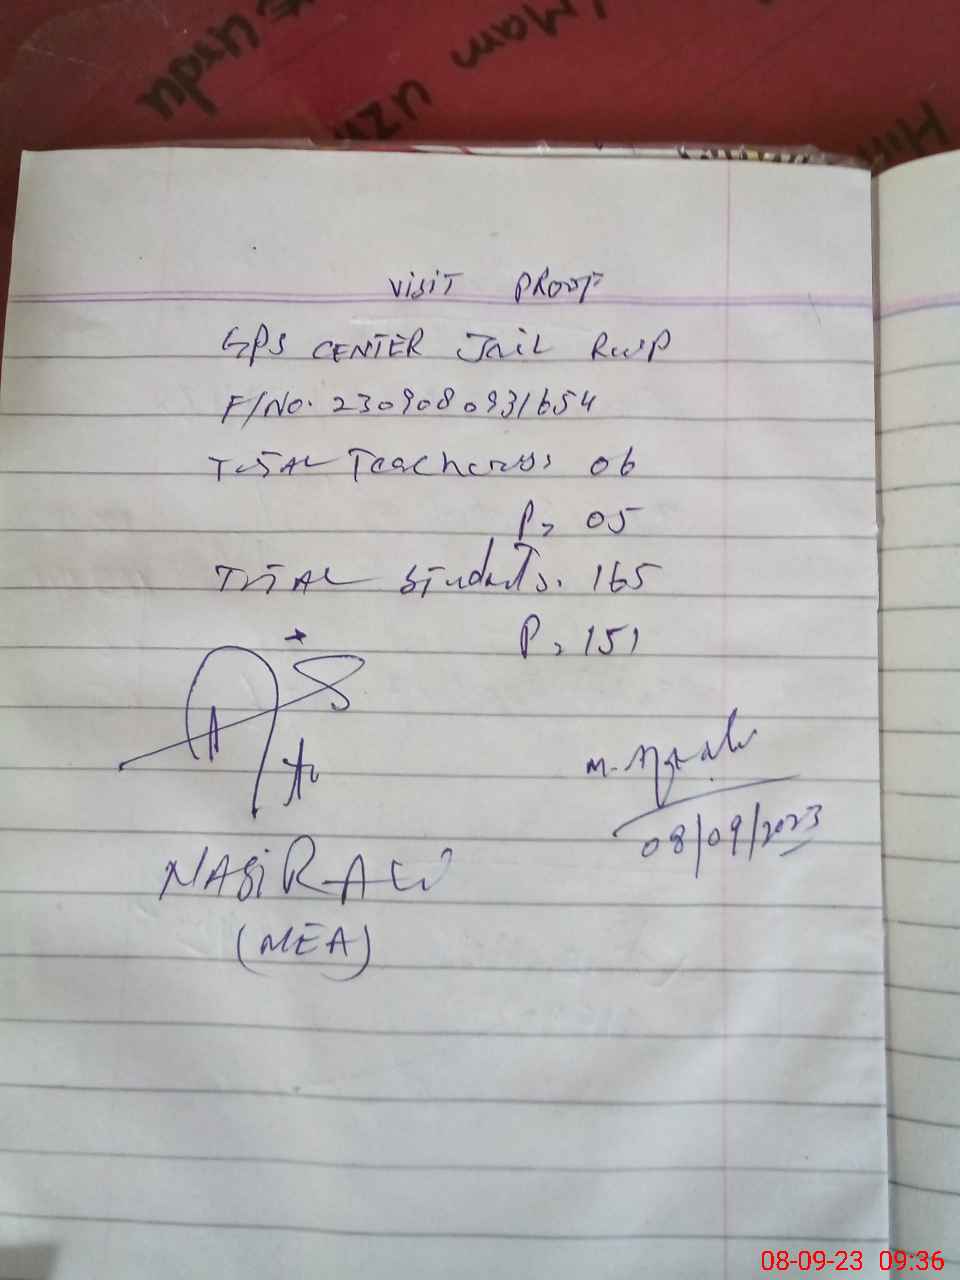 Mam
UZ
VISIT PROOF
GPS CENTER JAIL RWP
F/NO. 2309080931654
TOTAL Teachers 06
P, 05
TOTAL Students. 165
P, 151
08/09/2023
NASIR ALI
(MEA)
08-09-23 09:36